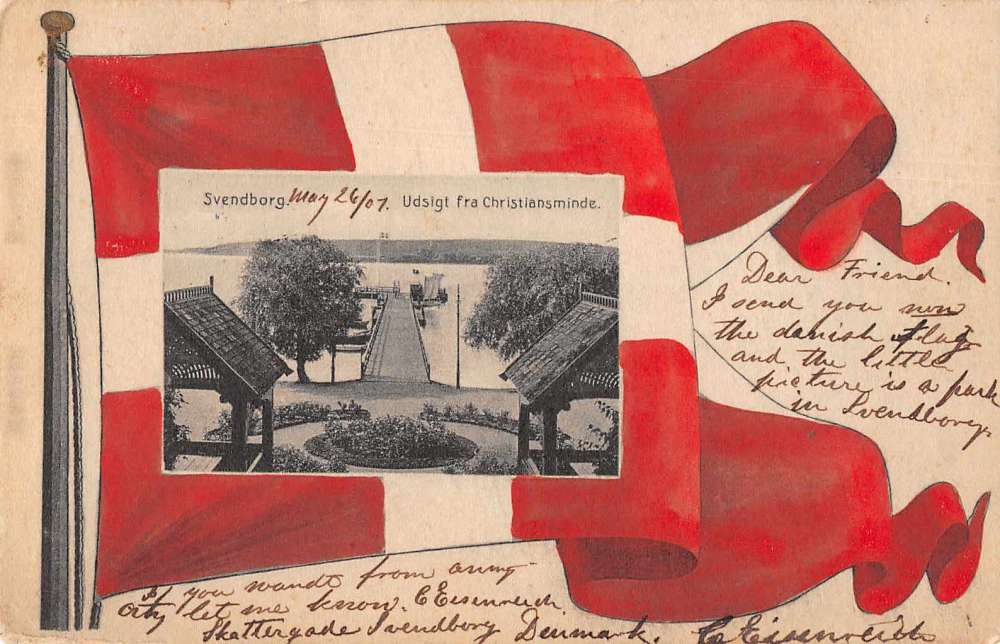 Svendborg. May 26/07. Udsigt fra Christiansminde.
Dear Friend.
I send you now
the danish flag
and the little
picture is a park
in Svendborg.
If you wandt from anny
city let me know. C Eisenreich.
Skattergade Svendborg Denmark.
C Eisenreich